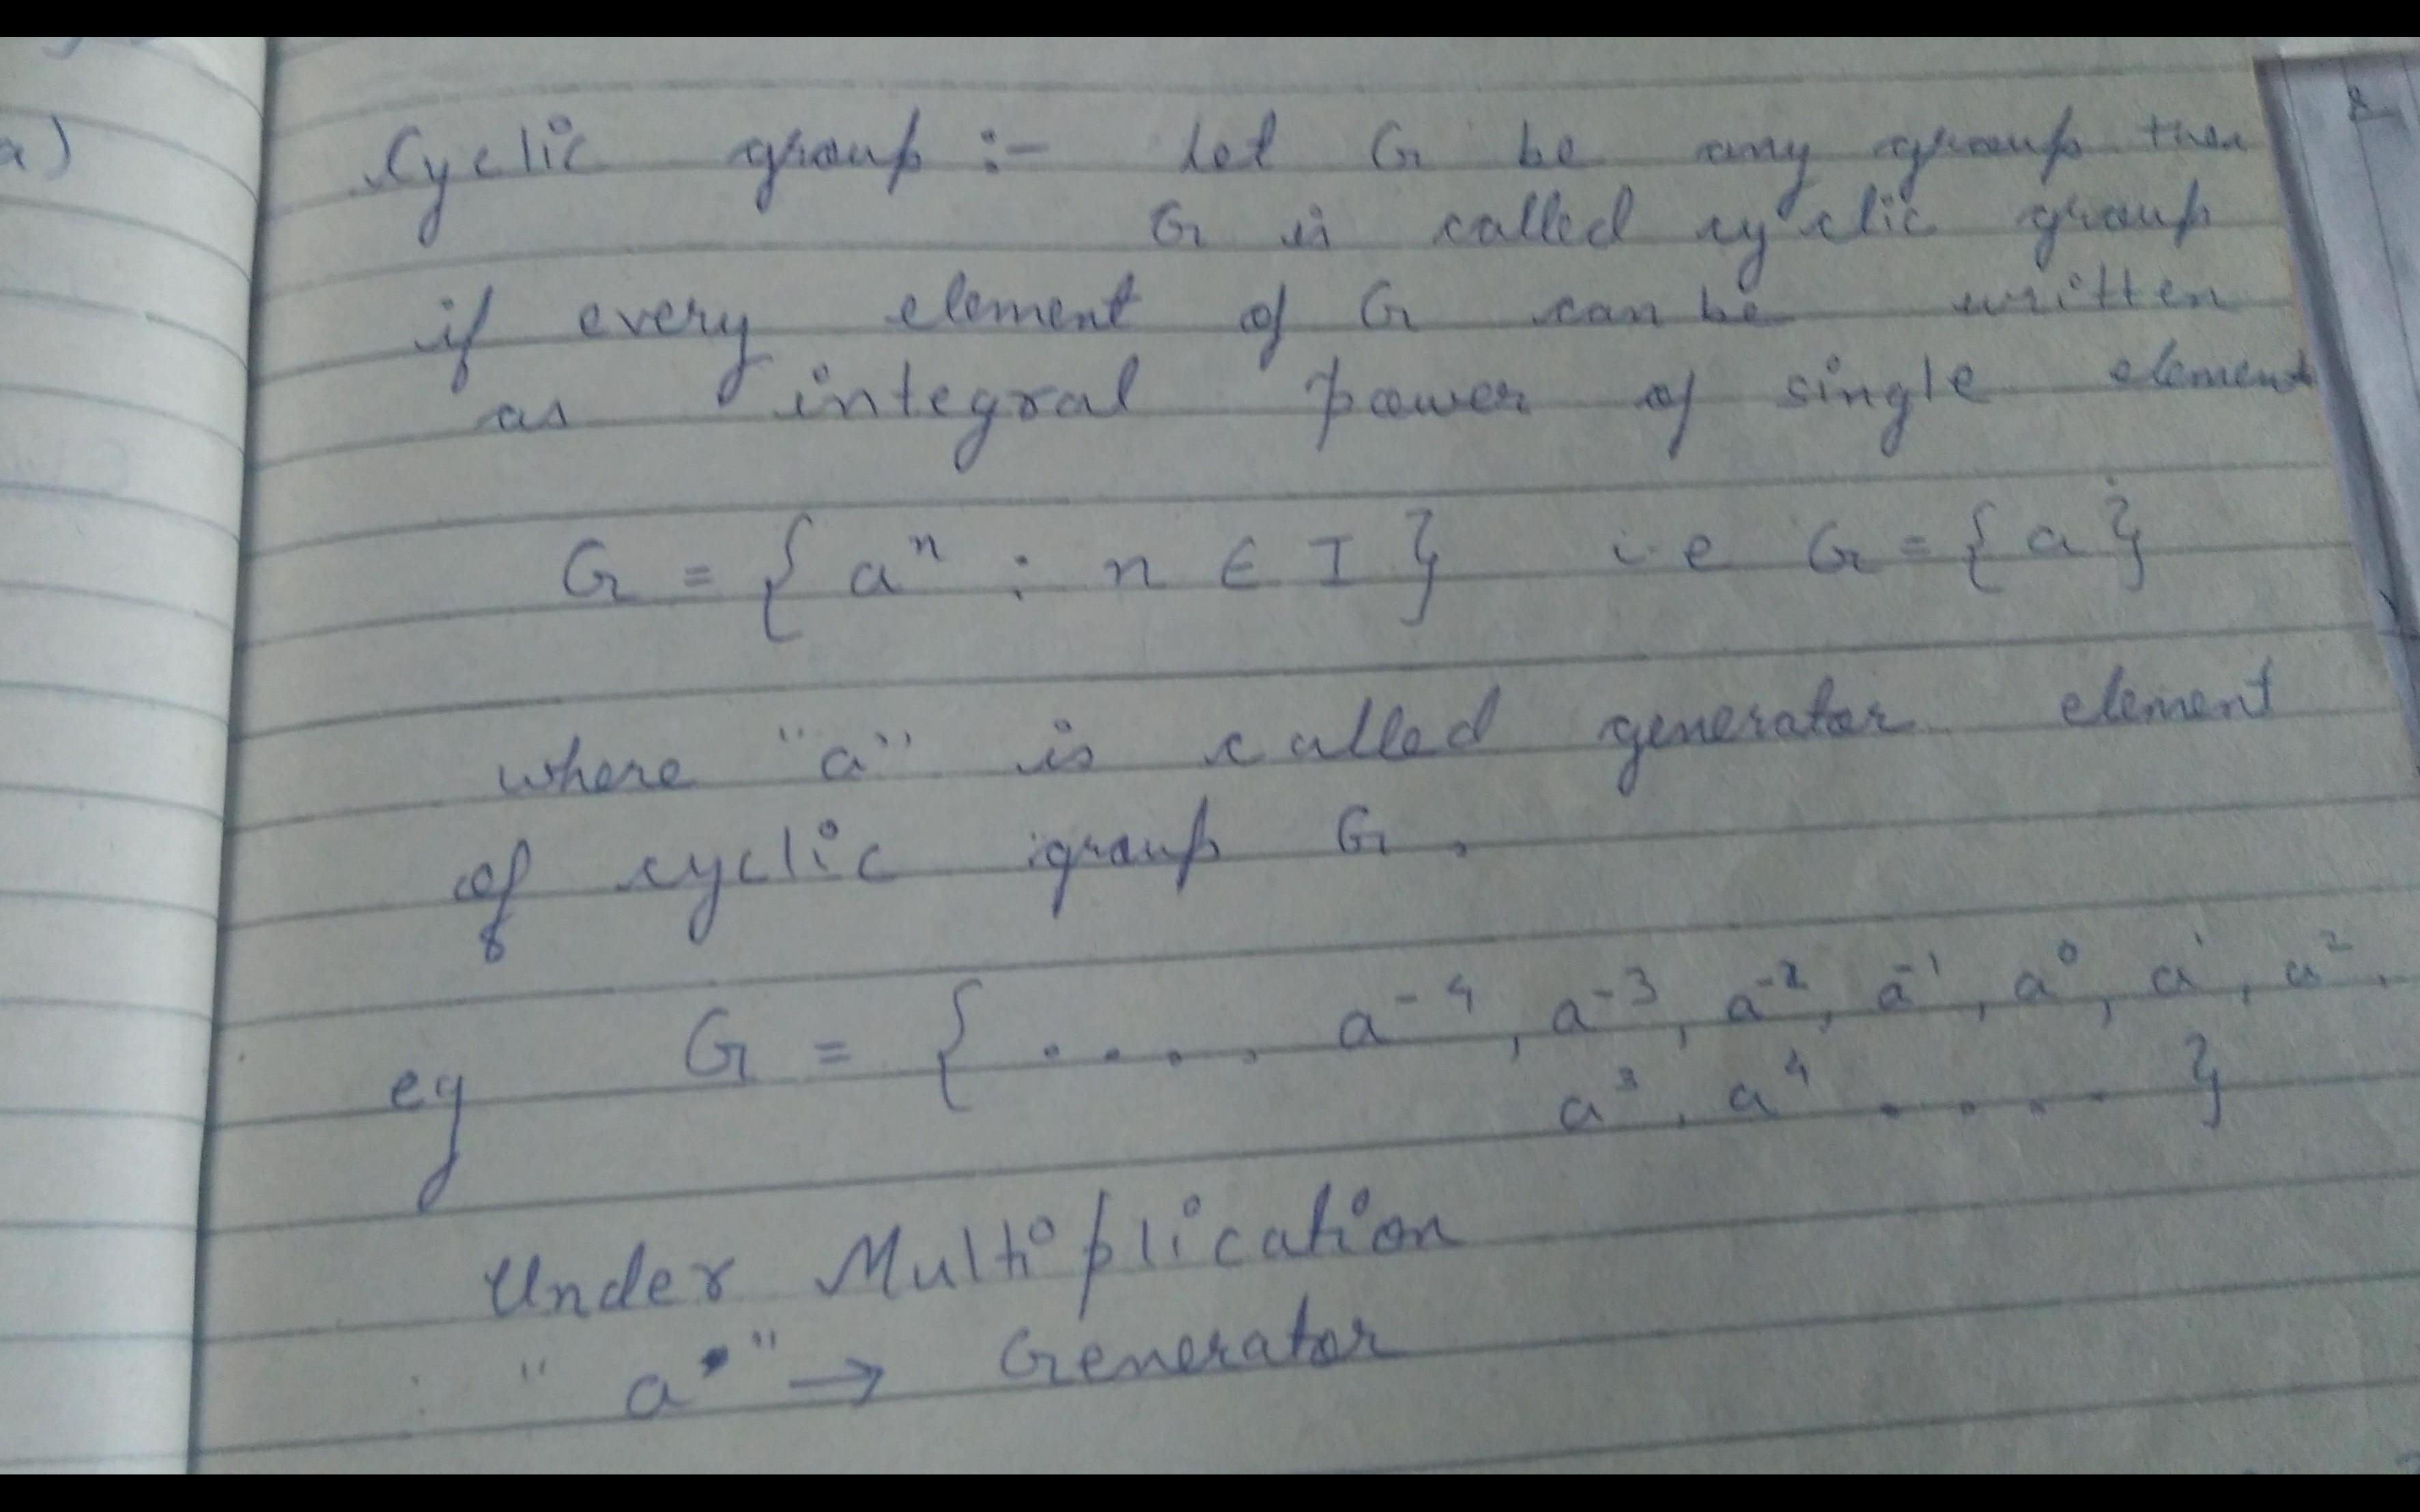 a)
Cyclic group :- Let G be any group then
G is called cyclic group
if every element of G can be written
as integral power of single element
G = { aⁿ : n ∈ I } i.e G = { a }
where "a" is called generator element
of cyclic group G.
eg G = { ..... a⁻⁴, a⁻³, a⁻², a⁻¹, a⁰, a¹, a²,
a³, a⁴ .... }
Under Multiplication
" a " → Generator